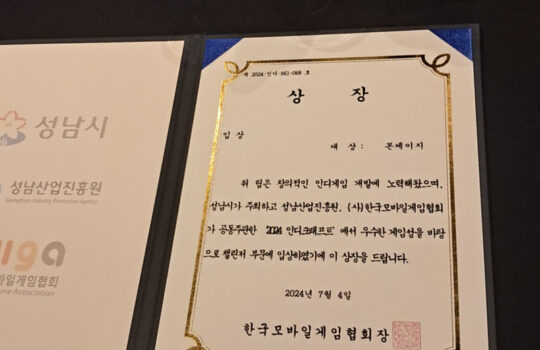 성남시
성남산업진흥원
Seongnam Industry Promotion Agency
바일게임협회
me Association
제 2024-인디-061-068 호
상 장
입상
대 상 : 본페이지
위 팀은 창의적인 인디게임 개발에 노력해왔으며,
성남시가 주최하고 성남산업진흥원, (사)한국모바일게임협회
가 공동주관한 '2024 인디크래프트' 에서 우수한 게임성을 바탕
으로 챌린저 부문에 입상하였기에 이 상장을 드립니다.
2024년 7월 4일
한국모바일게임협회장